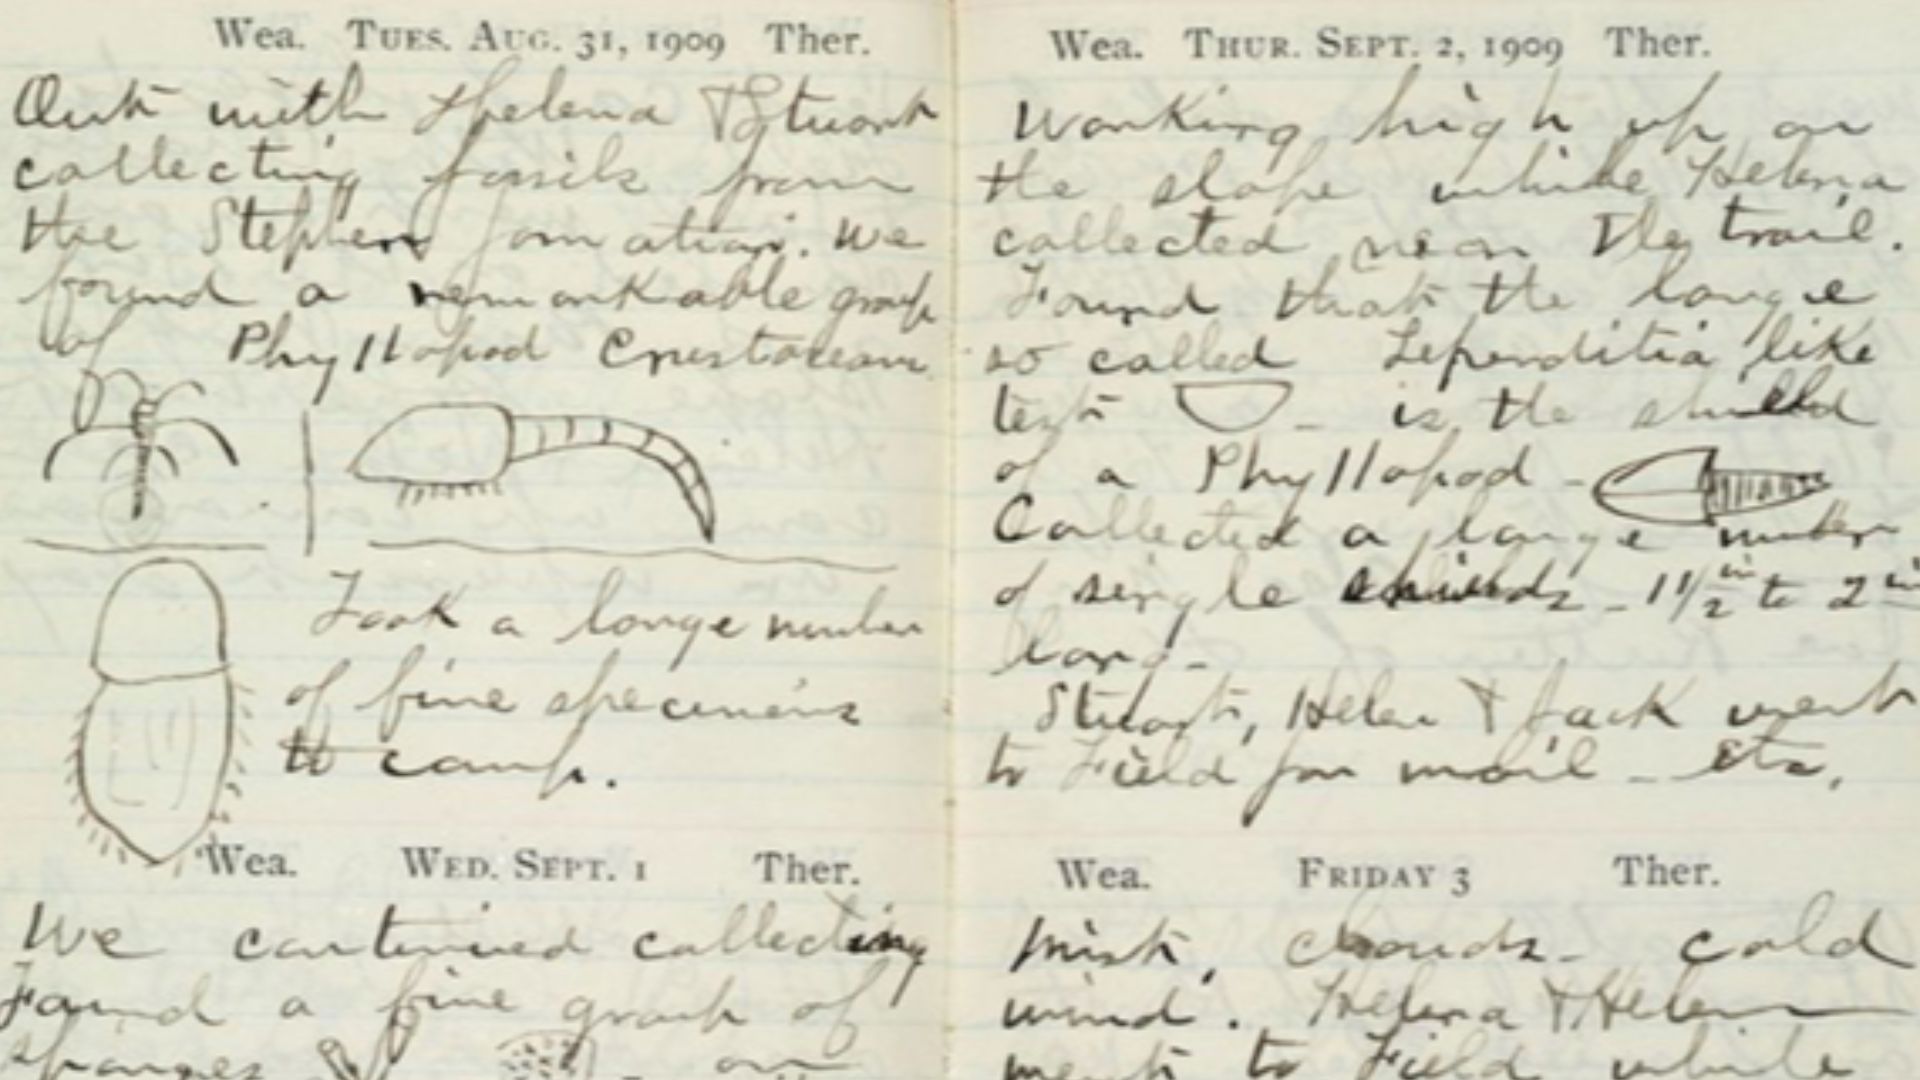 Wea. TUES. AUG. 31, 1909 Ther.
Out with Helena & Stuart
collecting fossils from
the Stephen formation. We
found a remarkable group
of Phyllopod Crustaceans
Took a large number
of fine specimens
to camp.
Wea. WED. SEPT. 1 Ther.
We continued collecting
Found a fine group of
sponges on
Wea. THUR. SEPT. 2, 1909 Ther.
Working high up on
the slope while Helena
collected near the trail.
Found that the large
so called Leperditia like
test - is the shield
of a Phyllopod -
Collected a large number
of single - 1 1/2 in to 2 in
long -
Stuart, Helen & Jack went
to Field for mail - etc.
Wea. FRIDAY 3 Ther.
Mist, clouds - cold
wind. Helena & Helen
went to Field while